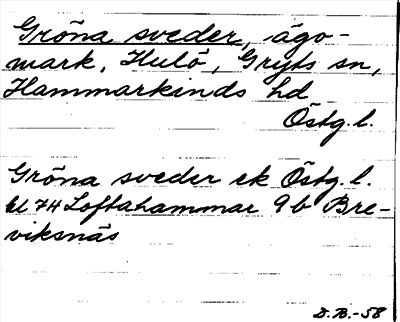 Gröna sveder, ägo-
mark, Hulö, Gryts sn,
Hammarkinds hd
Östg. l.
Gröna sveder ek Östg. l.
bl 7H Loftahammar 9 b Bre-
viksnäs
D. B. -58